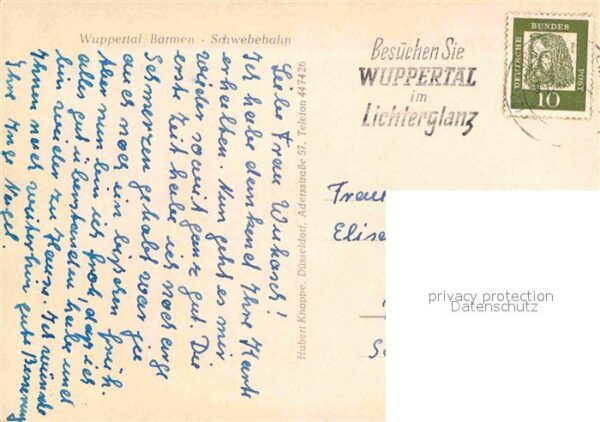 Wuppertal/Barmen - Schwebebahn
Liebe Frau Wukasch!
Ich habe dankend Ihre Karte
erhalten. Nun geht es mir
wieder soweit ganz gut. Die
erste Zeit habe ich noch arge
Schmerzen gehabt war ja
auch noch ein bißchen früh.
Aber nun bin ich froh, daß ich
alles gut überstanden habe und
bin wieder zu Hause. Ich wünsche
Ihnen noch weiterhin gute Besserung
Ihre Inge Nagel.
Hubert Knappe, Düsseldorf, Adersstraße 57, Telefon 447426
Besuchen Sie
WUPPERTAL
im
Lichterglanz
DEUTSCHE
BUNDES
POST
10
Frau
Elise
privacy protection
Datenschutz